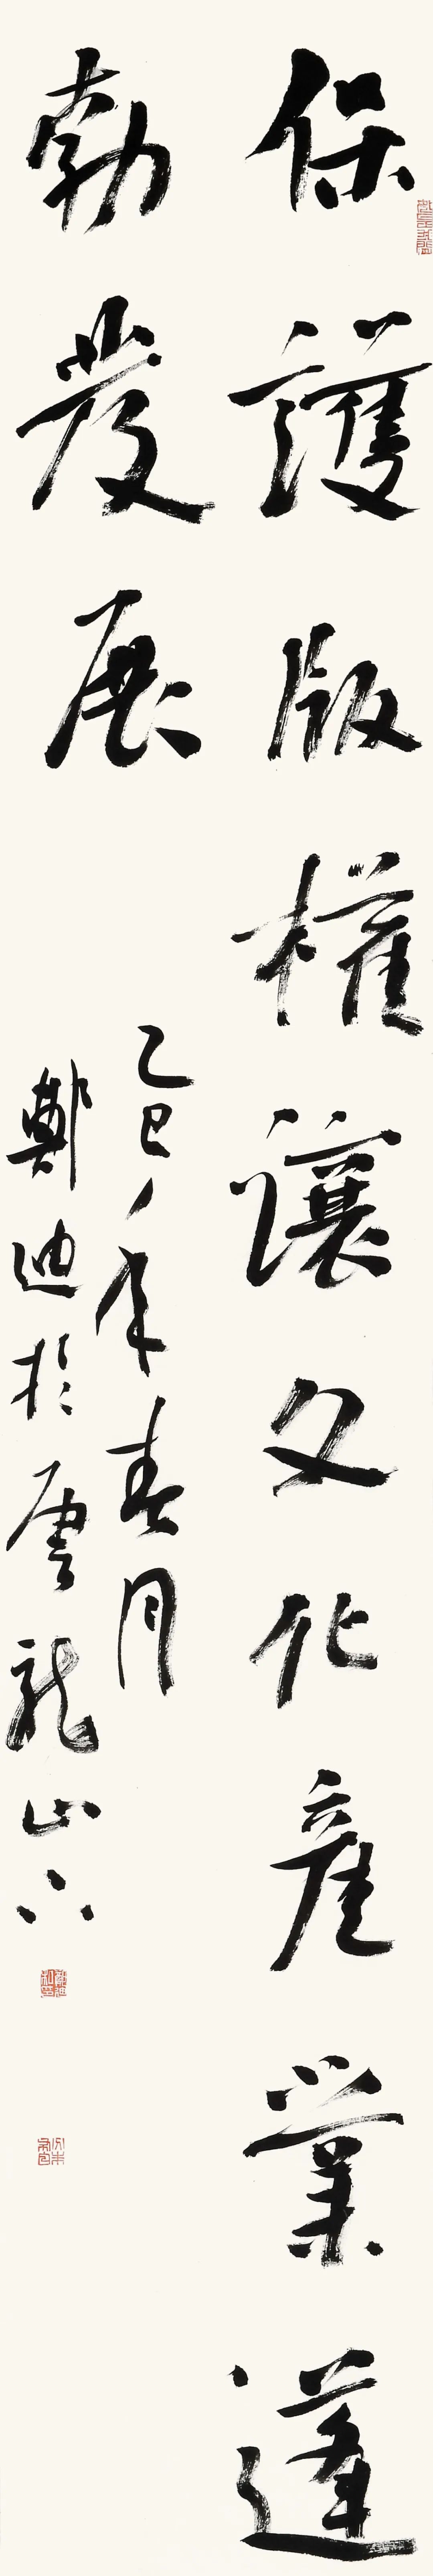 保護版權讓文化產業蓬
勃發展
乙巳年春月
鄭迪於雲龍山下